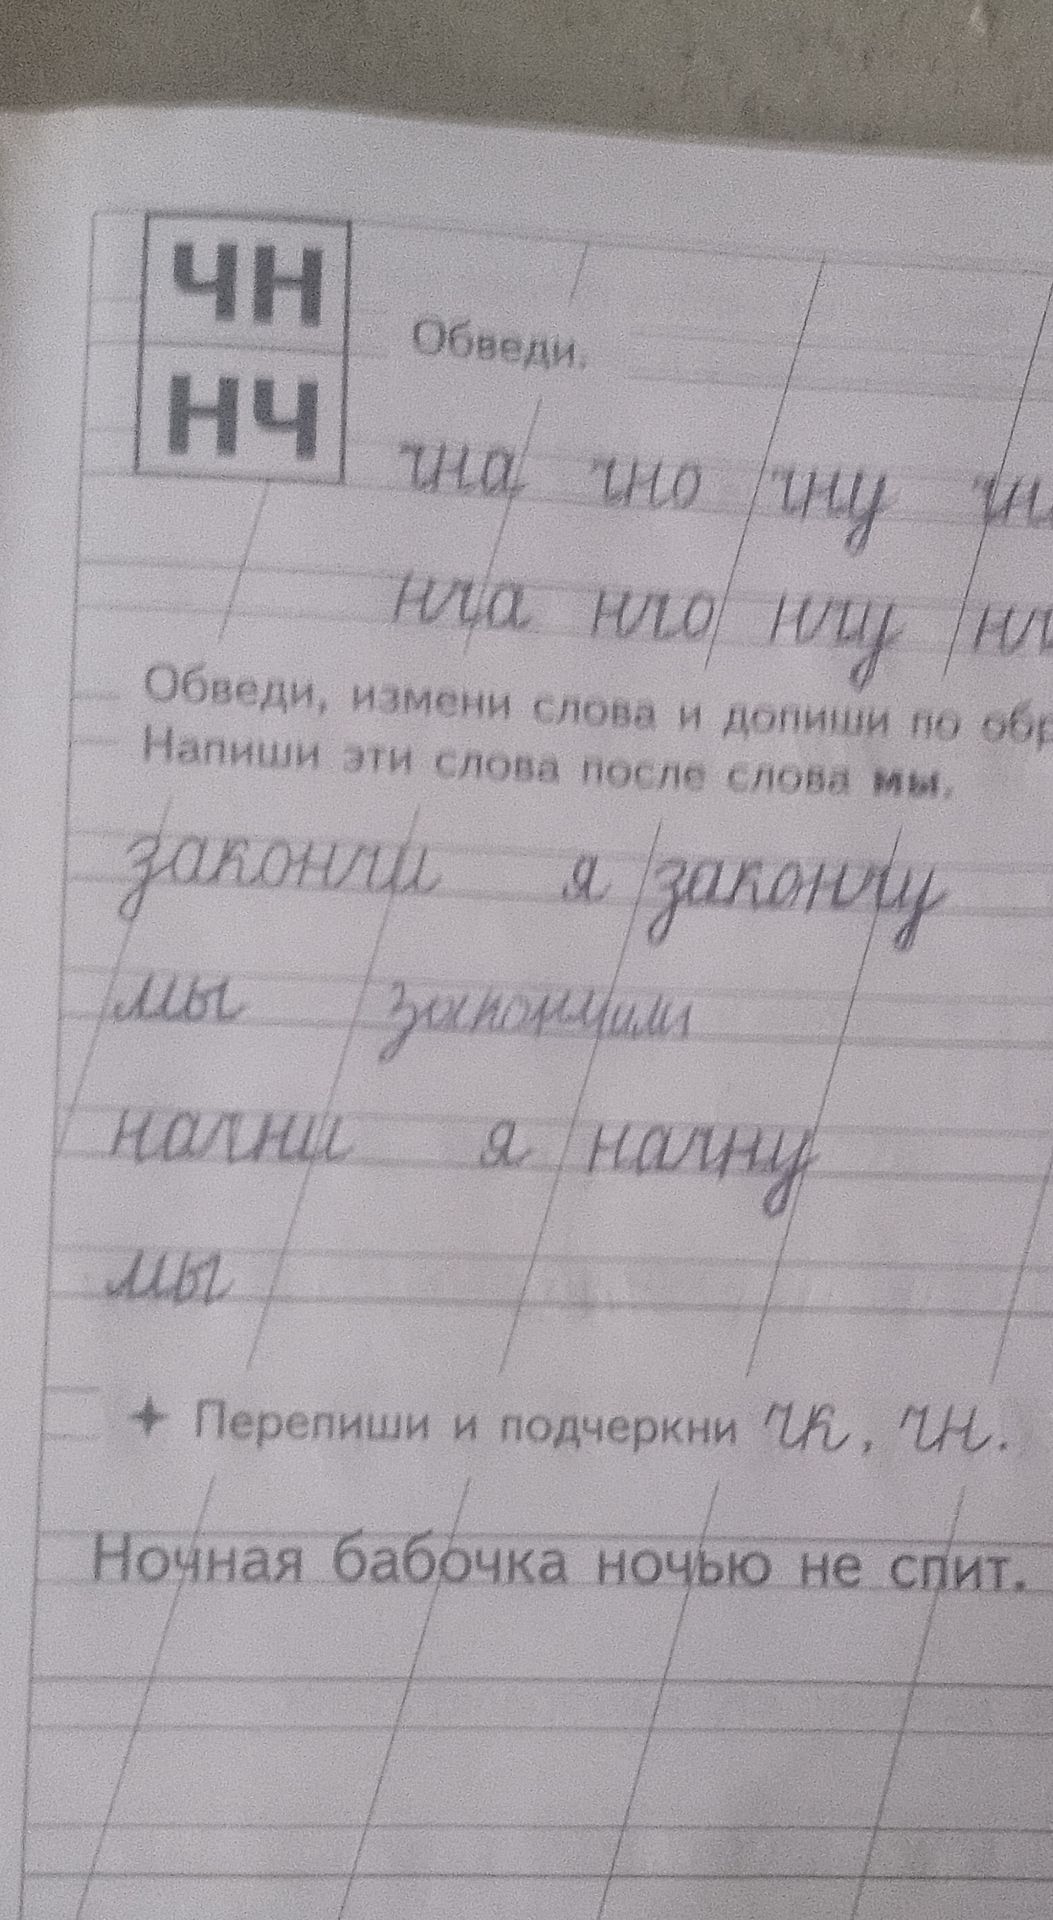 чн
нч
Обведи.
чна чно чну
нча нчо нчу
Обведи, измени слова и допиши по
Напиши эти слова после слова мы.
закончи я закончу
мы закончили
начни я начну
мы
Перепиши и подчеркни чк, чн.
Ночная бабочка ночью не спит.